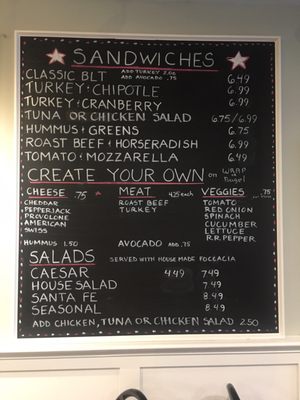 SANDWICHES
CLASSIC BLT ADD TURKEY 2.00 ADD AVOCADO .75 6.49
TURKEY + CHIPOTLE 6.99
TURKEY + CRANBERRY 6.99
TUNA OR CHICKEN SALAD 6.75/6.99
HUMMUS + GREENS 6.75
ROAST BEEF + HORSERADISH 6.99
TOMATO + MOZZARELLA 6.49
CREATE YOUR OWN on WRAP Bagel
CHEESE .75 MEAT 4.25 each VEGGIES .75
CHEDDAR ROAST BEEF TOMATO
PEPPERJACK TURKEY RED ONION
PROVOLONE SPINACH
AMERICAN CUCUMBER
SWISS LETTUCE
R.R. PEPPER
HUMMUS 1.50 AVOCADO ADD .75
SALADS SERVED WITH HOUSE MADE FOCCACIA
CAESAR 4.49 7.49
HOUSE SALAD 7.49
SANTA FE 8.49
SEASONAL 8.49
ADD CHICKEN, TUNA OR CHICKEN SALAD 2.50